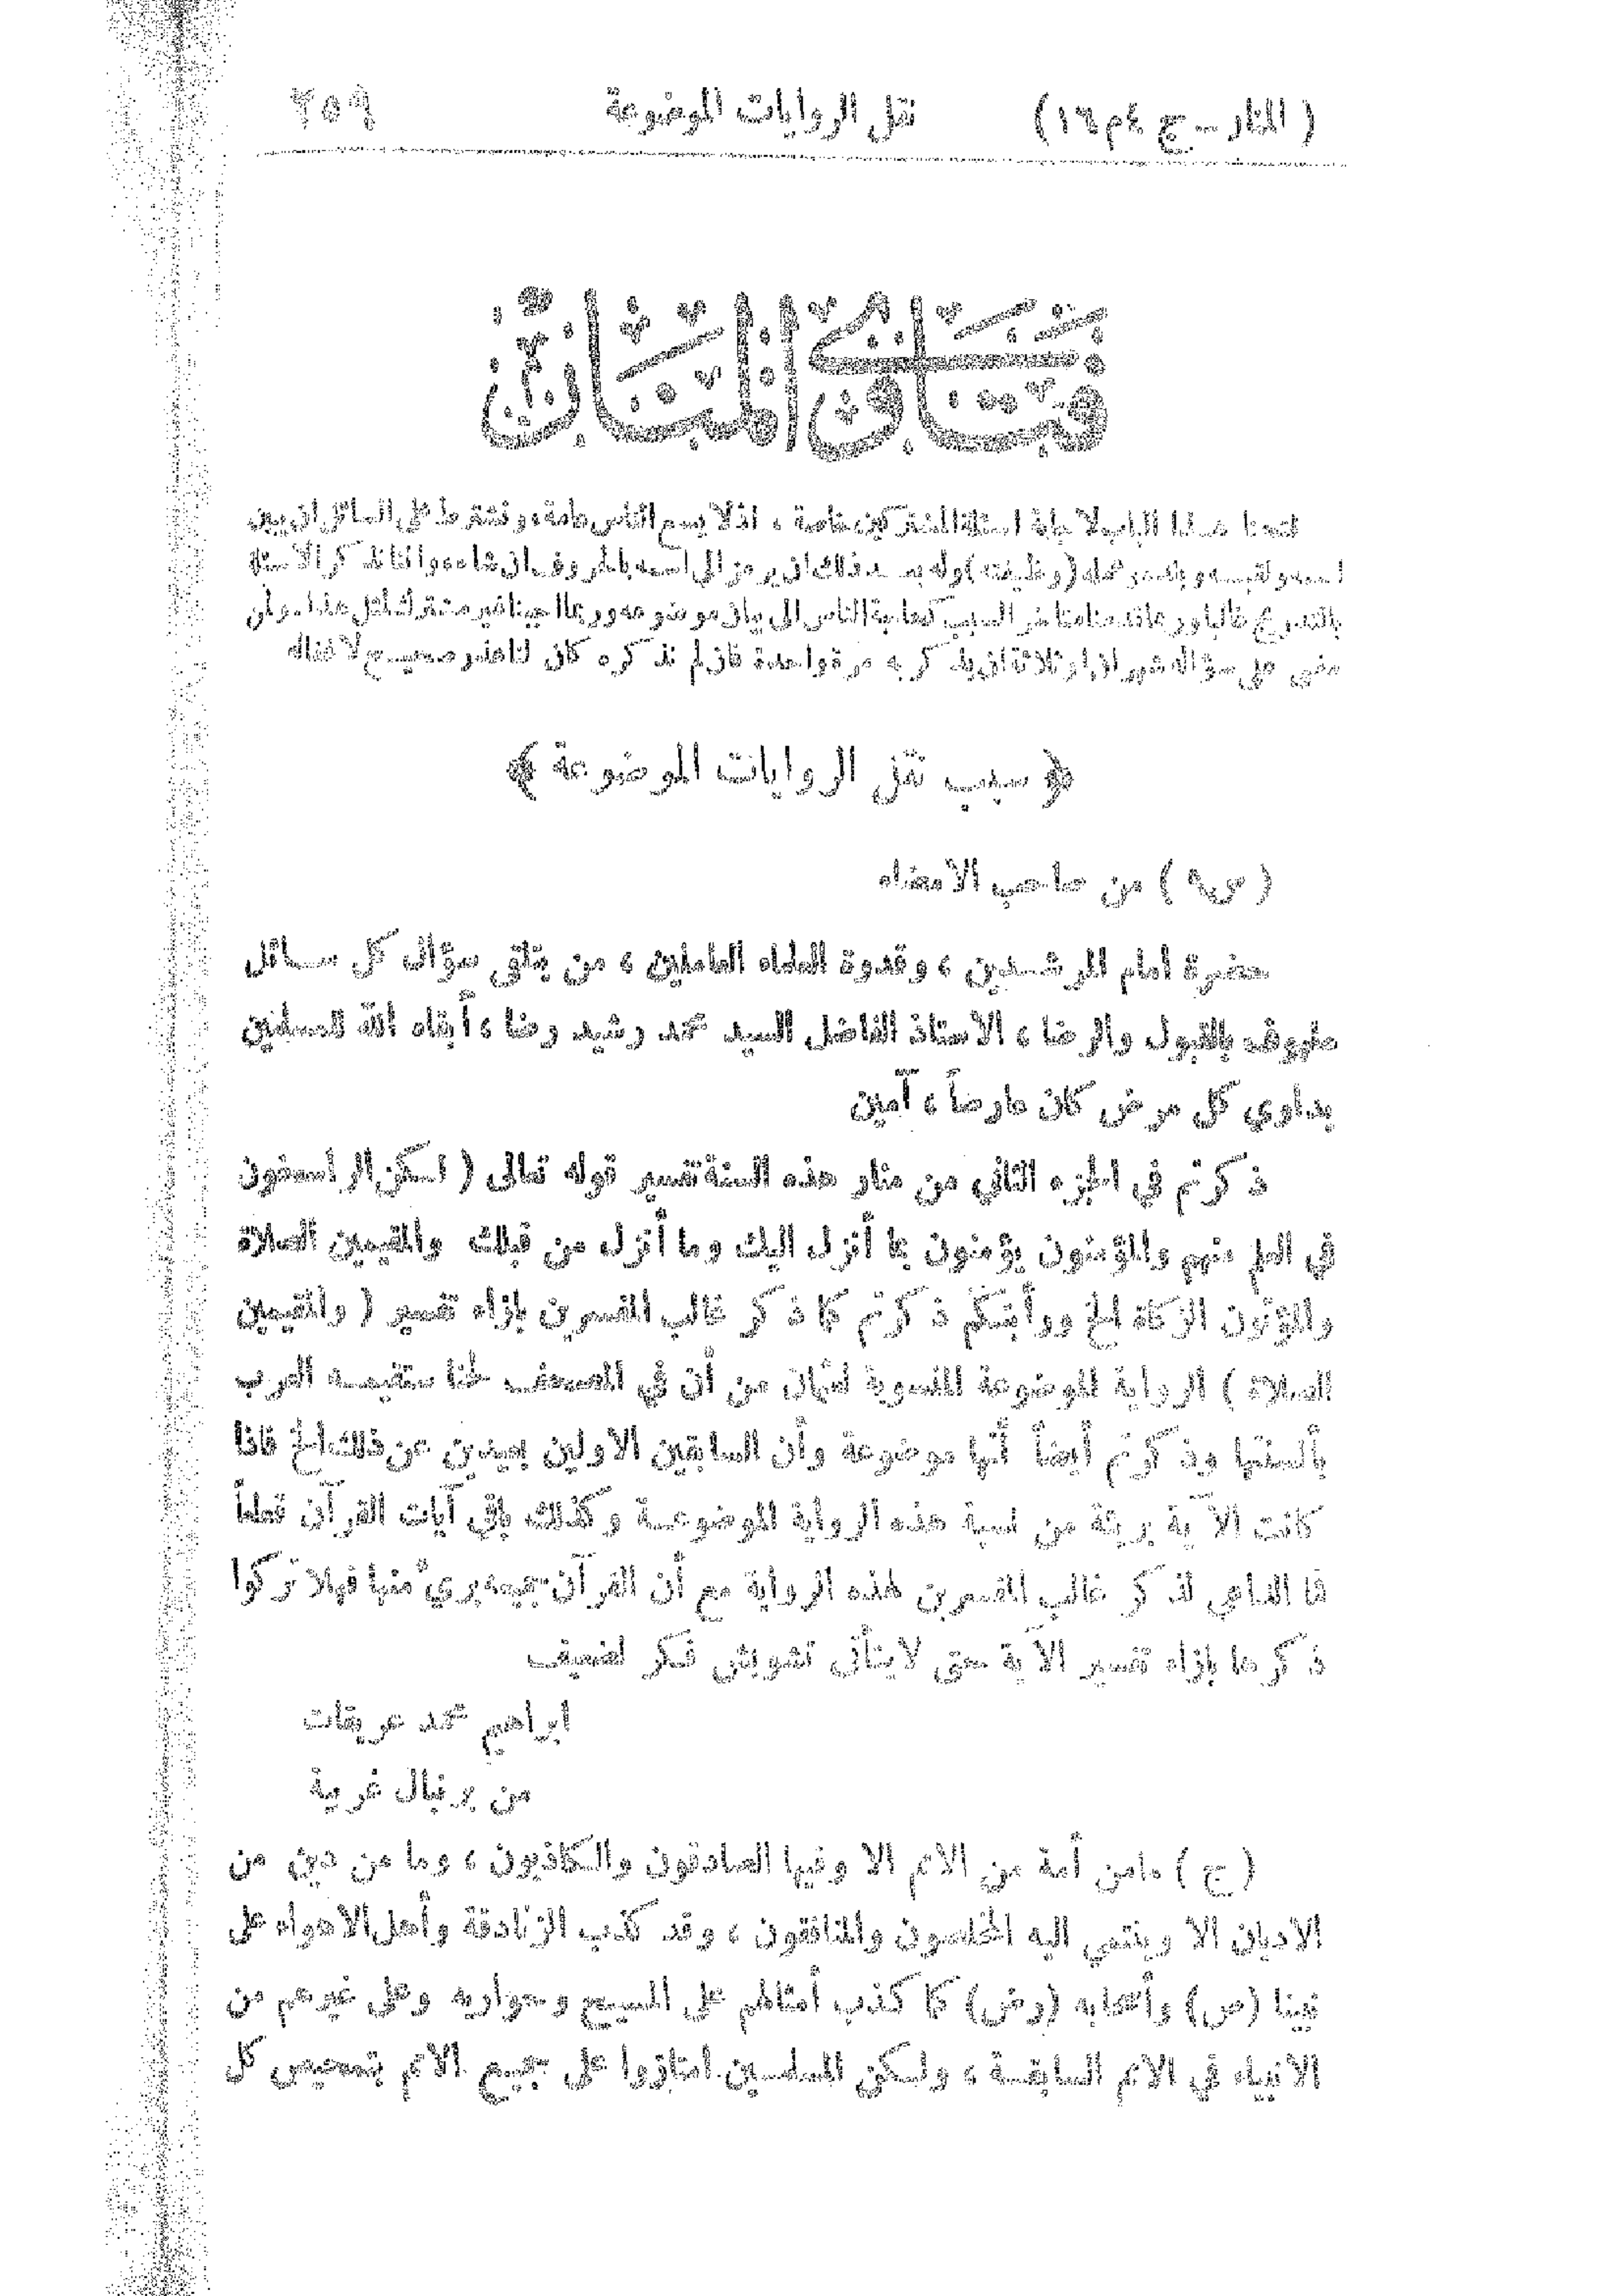 ( المنار ــ ج ٤ م ١٦ ) نقل الروايات الموضوعة ٢٥٩
فتاوى المنار
فتحنا هذا الباب لاجابة اسئلة المشتركين خاصة ، اذ لا يسع الناس عامة، ونشترط على السائل ان يبين
اسمه ولقبه وبلده وعمله (وظيفته) وله بعد ذلك ان يرمز الى اسمه بالحروف ان شاء، واننا نذكر الاسئلة
بالتدريج غالبا وربما قدمنا متأخرا لسبب كحاجة الناس الى بيان موضوعه وربما اجبنا غير مشترك لمثل هذا. ولمن
مضى على سؤاله شهران او ثلاثة ان يذكر به مرة واحدة فان لم نذكره كان لنا عذر صحيح لاغفاله
﴿ سبب نقل الروايات الموضوعة ﴾
( س٩ ) من صاحب الامضاء
حضرة امام المرشدين ، وقدوة العلماء العاملين ، من يتلقى سؤال كل سائل
ملهوف بالقبول والرضا ، الاستاذ الفاضل السيد محمد رشيد رضا ، أبقاه الله للمسلمين
يداوي كل مرض كان عارضاً ، آمين
ذكرتم في الجزء الثاني من منار هذه السنة تفسير قوله تعالى ( لكن الراسخون
في العلم منهم والمؤمنون يؤمنون بما أنزل اليك وما أنزل من قبلك والمقيمين الصلاة
والمؤتون الزكاة الخ ورأيتكم ذكرتم كما ذكر غالب المفسرين بإزاء تفسير ( والمقيمين
الصلاة ) الرواية الموضوعة المنسوبة لعثمان من أن في المصحف لحنا ستقيمه العرب
بألسنتها وذكرتم أيضاً أنها موضوعة وأن السابقين الاولين بعيدين عن ذلك الخ فاذا
كانت الآية بريئة من نسبة هذه الرواية الموضوعة وكذلك باقي آيات القرآن قطعاً
فما الداعي لذكر غالب المفسرين لهذه الرواية مع أن القرآن جميعه بريءٌ منها فهلا تركوا
ذكرها بإزاء تفسير الآية حتى لا يتأتى تشويش فكر لضعيف
ابراهيم محمد عريقات
من برنبال غربية
( ج ) مامن أمة من الامم الا وفيها الصادقون والكاذبون ، وما من دين من
الاديان الا وينتمي اليه المخلصون والمنافقون ، وقد كذب الزنادقة وأهل الاهواء على
نبينا (ص) وأصحابه (رض) كما كذب أمثالهم على المسيح وحواريه وعلى غيرهم من
الانبياء في الامم السابقة ، ولكن المسلمين امتازوا على جميع الامم بتمحيص كل